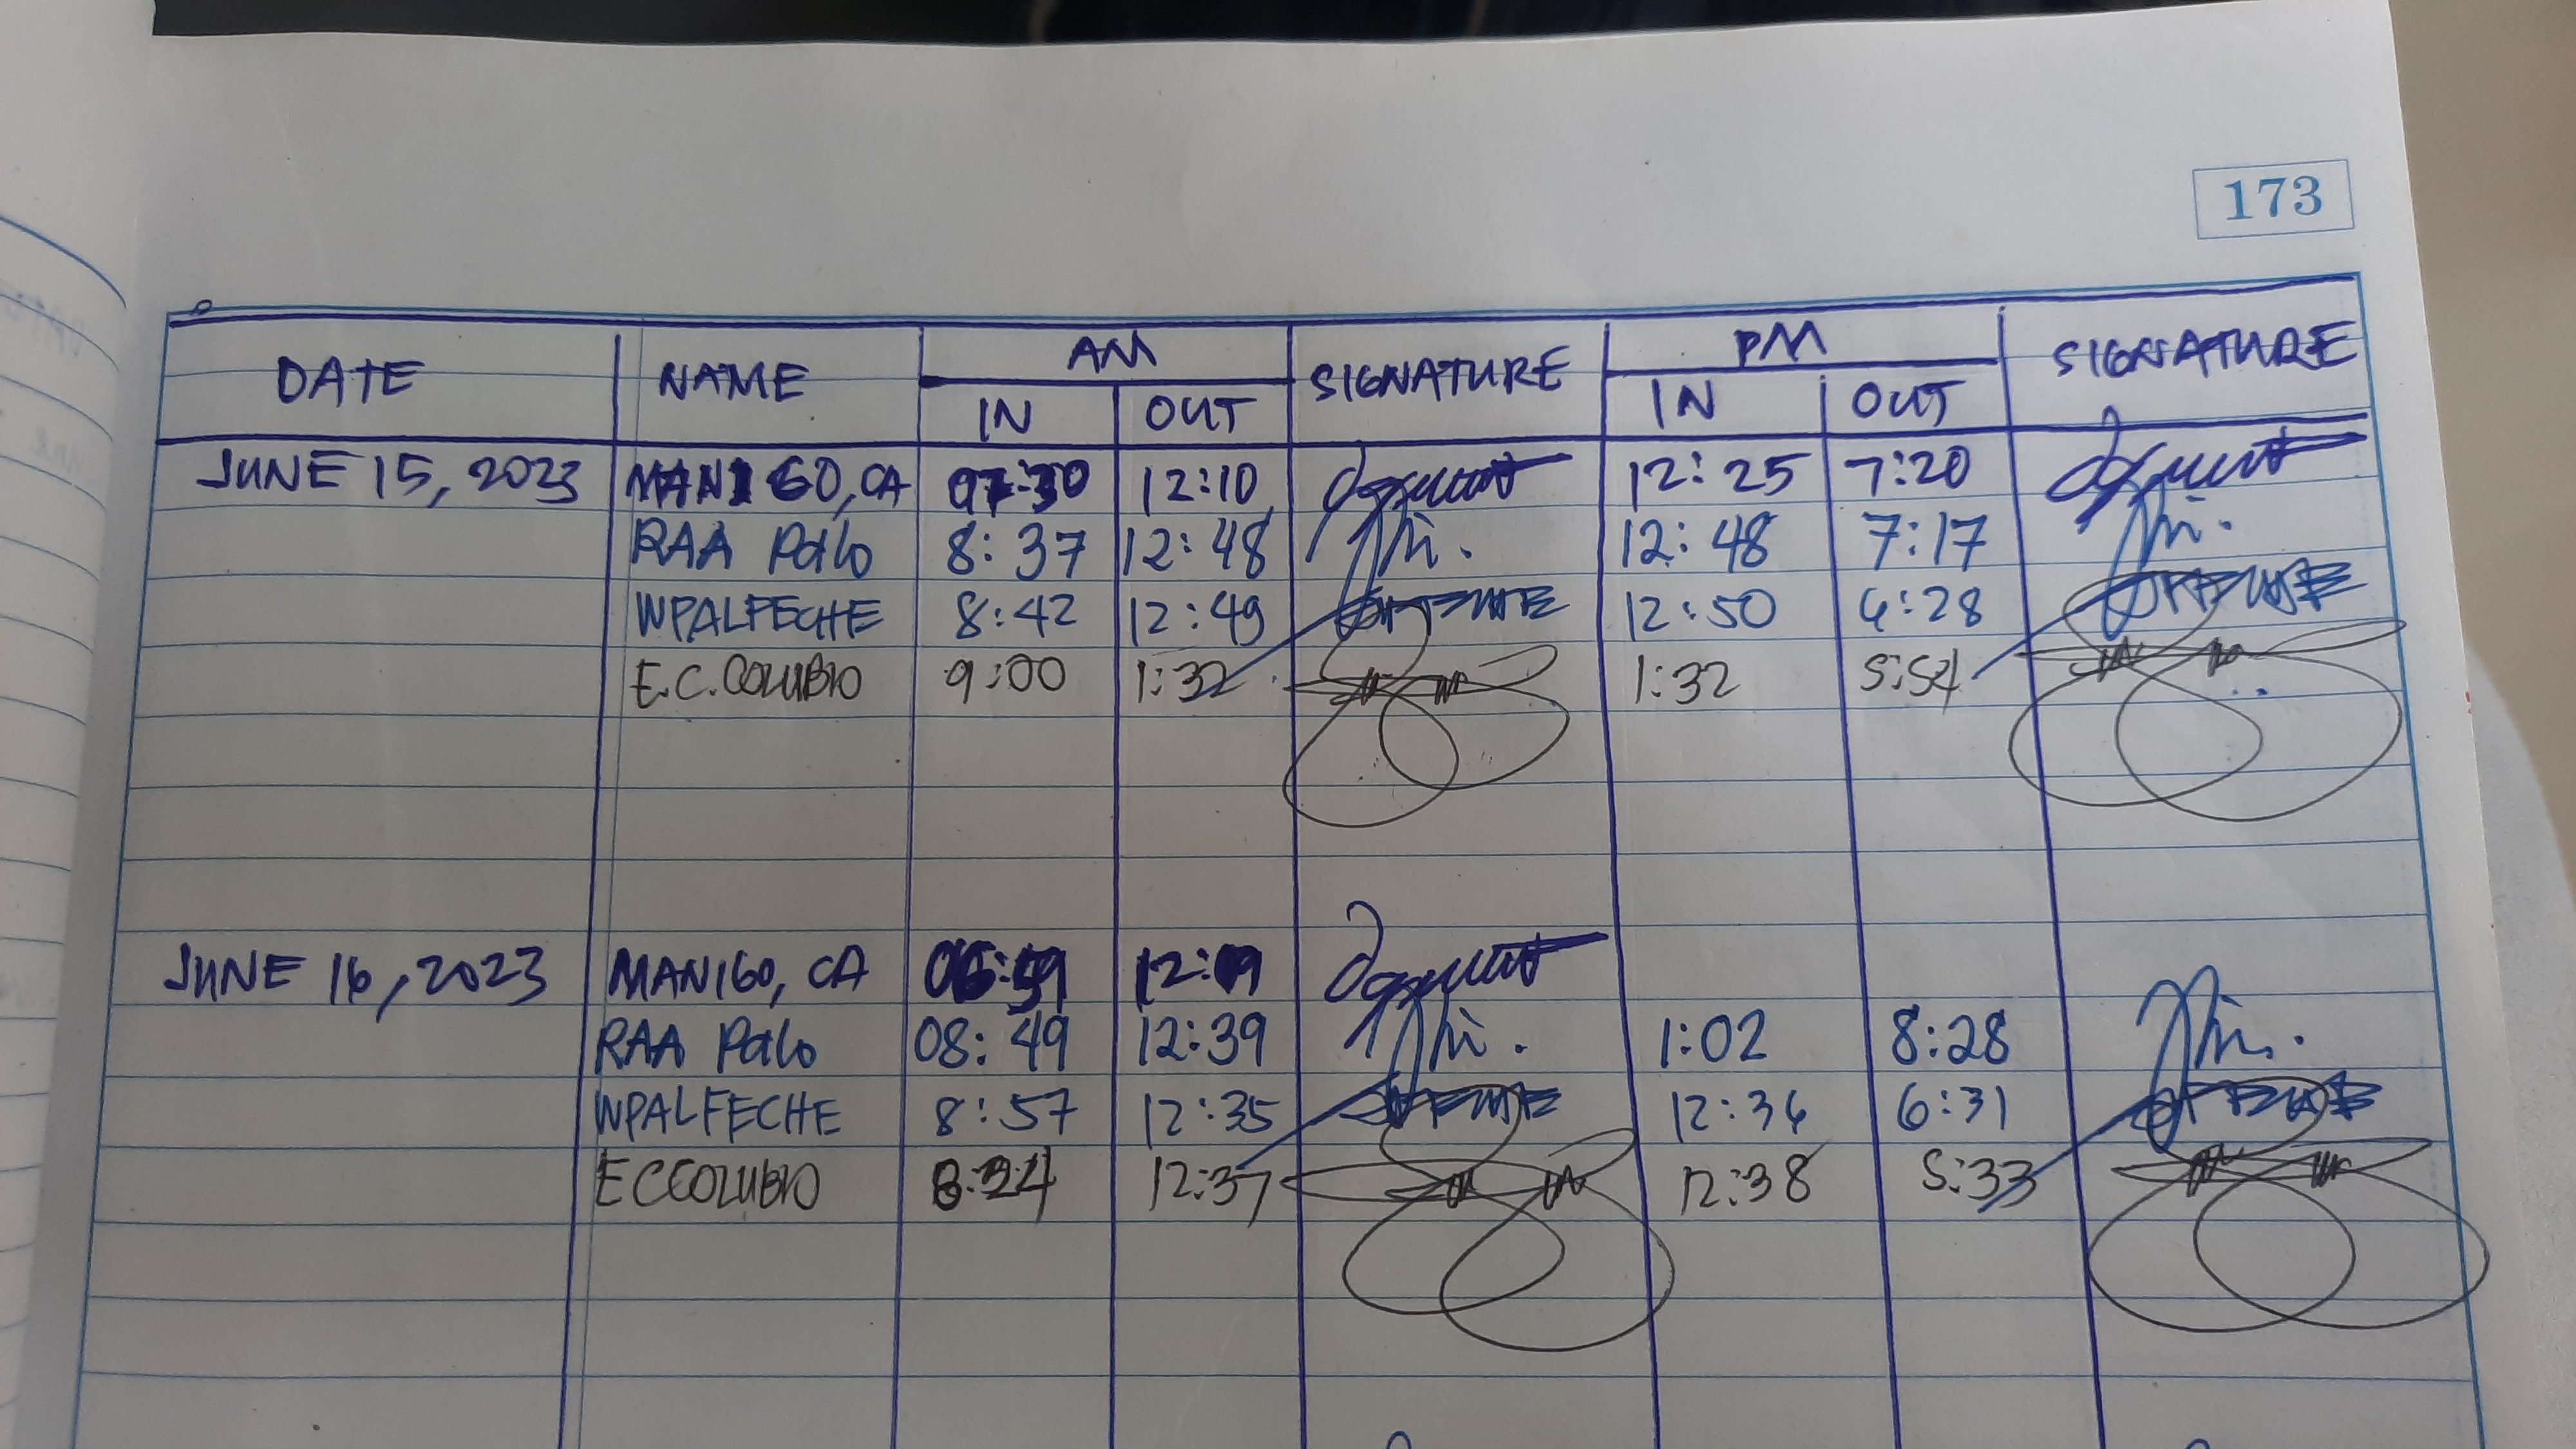 173
DATE NAME AM SIGNATURE PM SIGNATURE
IN OUT IN OUT
JUNE 15, 2023 MANIGO, CA 07:30 12:10 12:25 7:20
RAA Palo 8:37 12:48 12:48 7:17
WPALFECHE 8:42 12:49 12:50 6:28
E.C. COLUBIO 9:00 1:32 1:32 5:54
JUNE 16, 2023 MANIGO, CA 12:09
RAA Palo 08:49 12:39 1:02 8:28
WPALFECHE 8:57 12:35 12:36 6:31
ECCOLUBIO 12:37 12:38 5:33